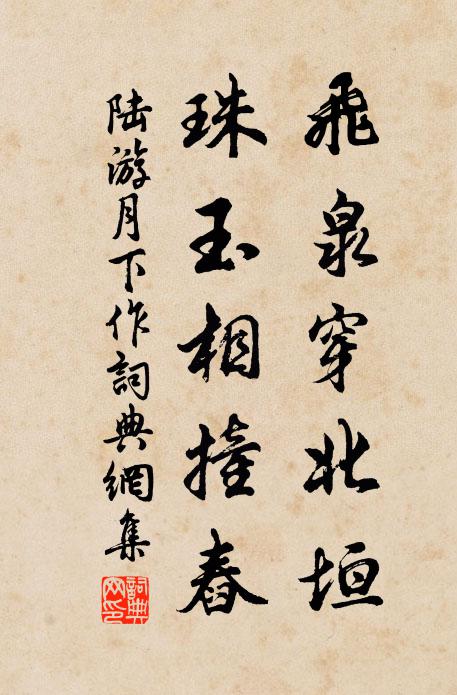 飛泉穿北垣
珠玉相撞舂
陸游月下作詞典網集
詞典網印